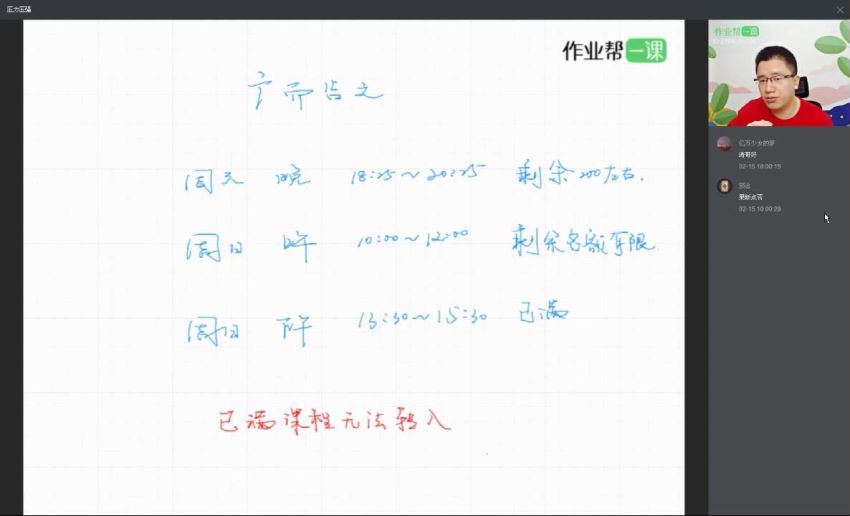 压力压强
作业帮一课
广而告之
周天 晚 18:25~20:25 剩余200左右.
周日 上午 10:00~12:00 剩余名额有限
周日 下午 13:30~15:30 已满
已满课程无法转入
作业帮一课
亿万少女的梦
涛哥好
02-15 10:00:15
果断点否
02-15 10:00:29